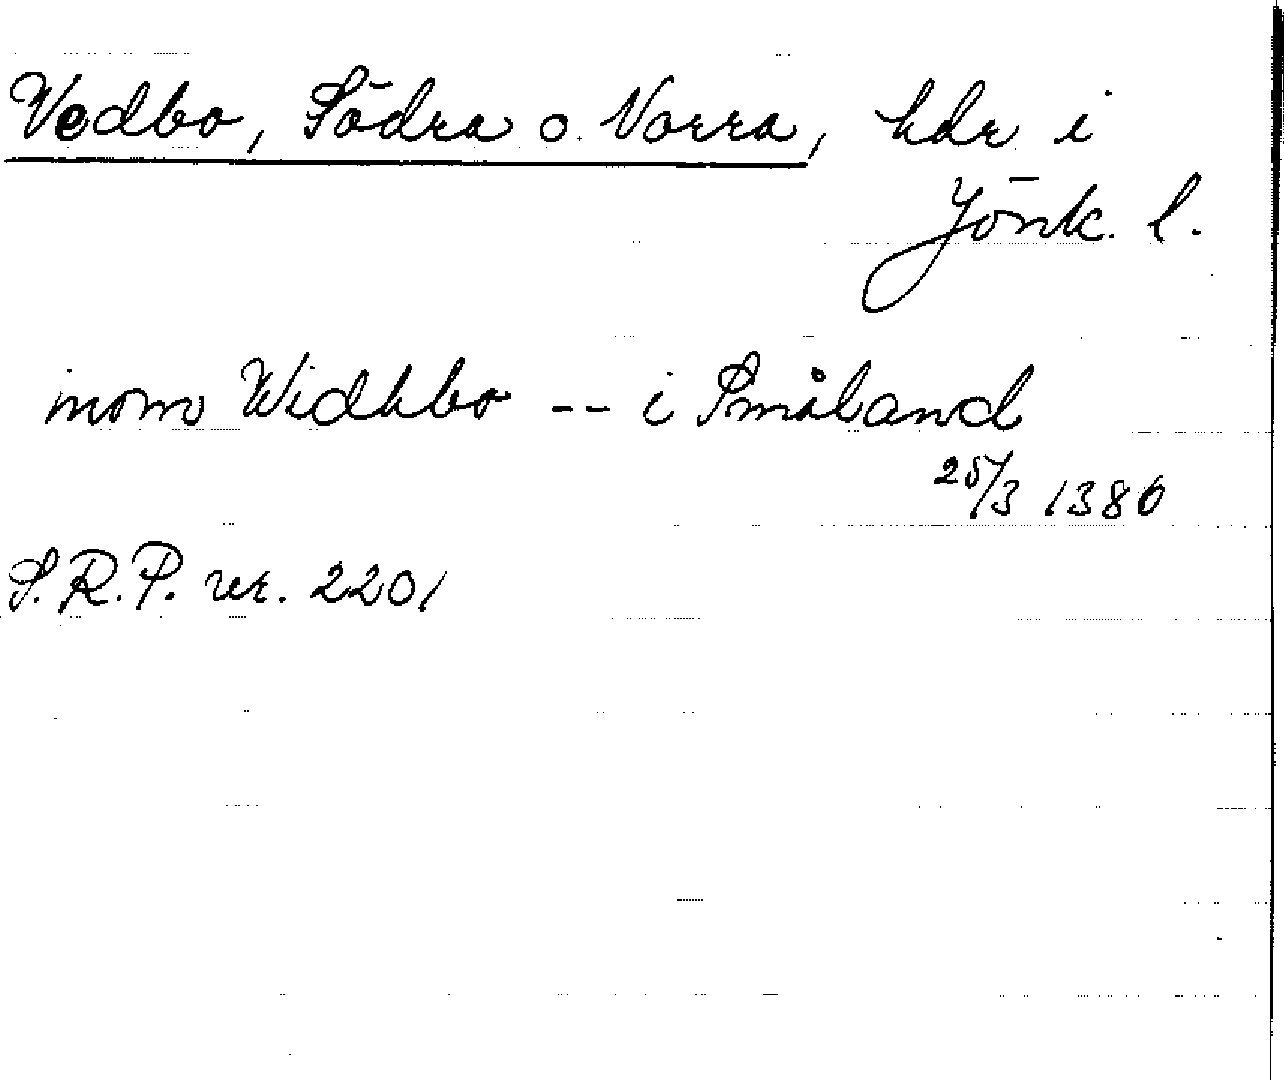 Vedbo, Södra o. Norra, hdr i
Jönk. l.
inom Widhbo -- i Småland
25/3 1386
S.R.P. nr. 2201